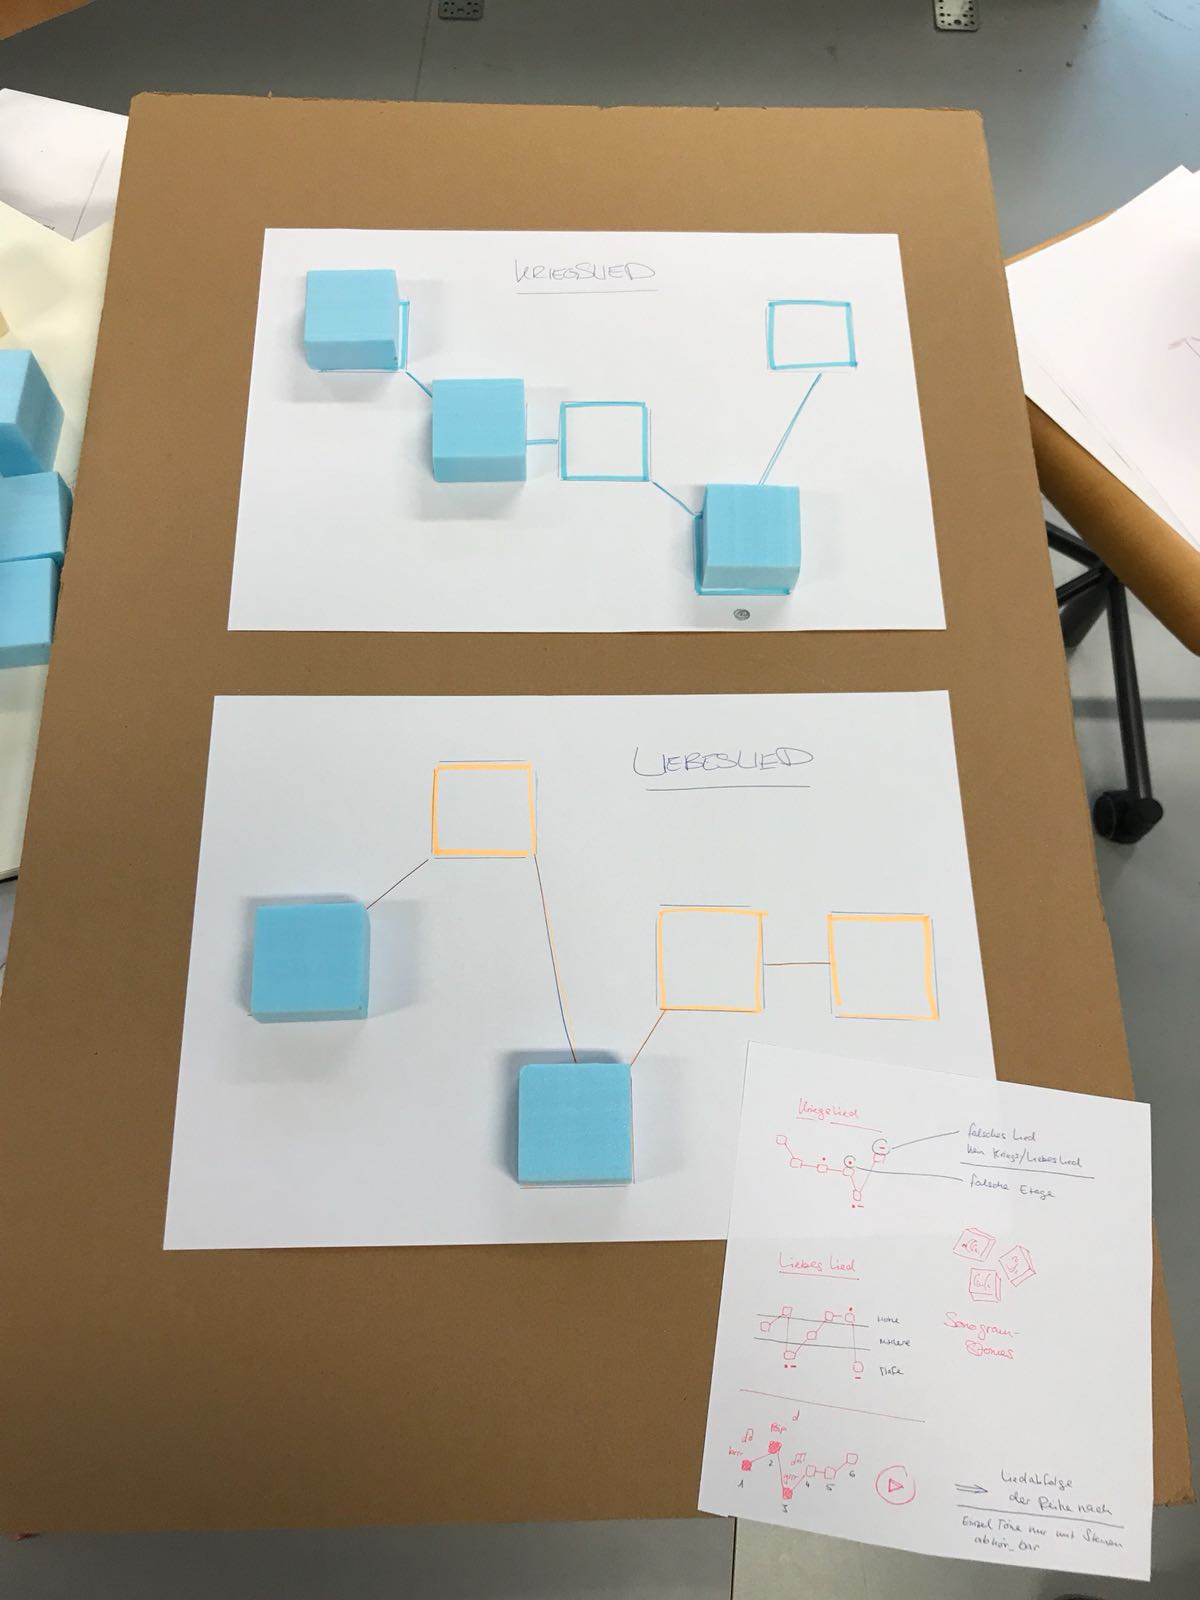 KRIEGSLIED
LIEBESLIED
Kriegslied
falsches Lied
kein Kriegs/Liebeslied
falsche Etage
Liebes Lied
Höhe
Mittlere
Tiefe
Sonogram-
Stones
d
Piep
brrr
grrr
1
2
3
4
5
6
Liedabfolge
der Reihe nach
Einzel Töne nur mit Steinen
abhör_bar